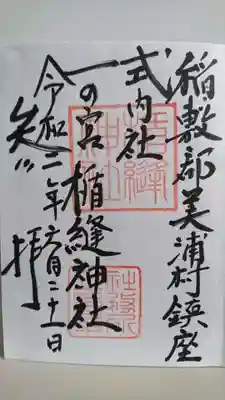 稲敷郡美浦村鎮座
式内社
一の宮楯縫神社
令和二年六月二十一日
拝
楯縫神社